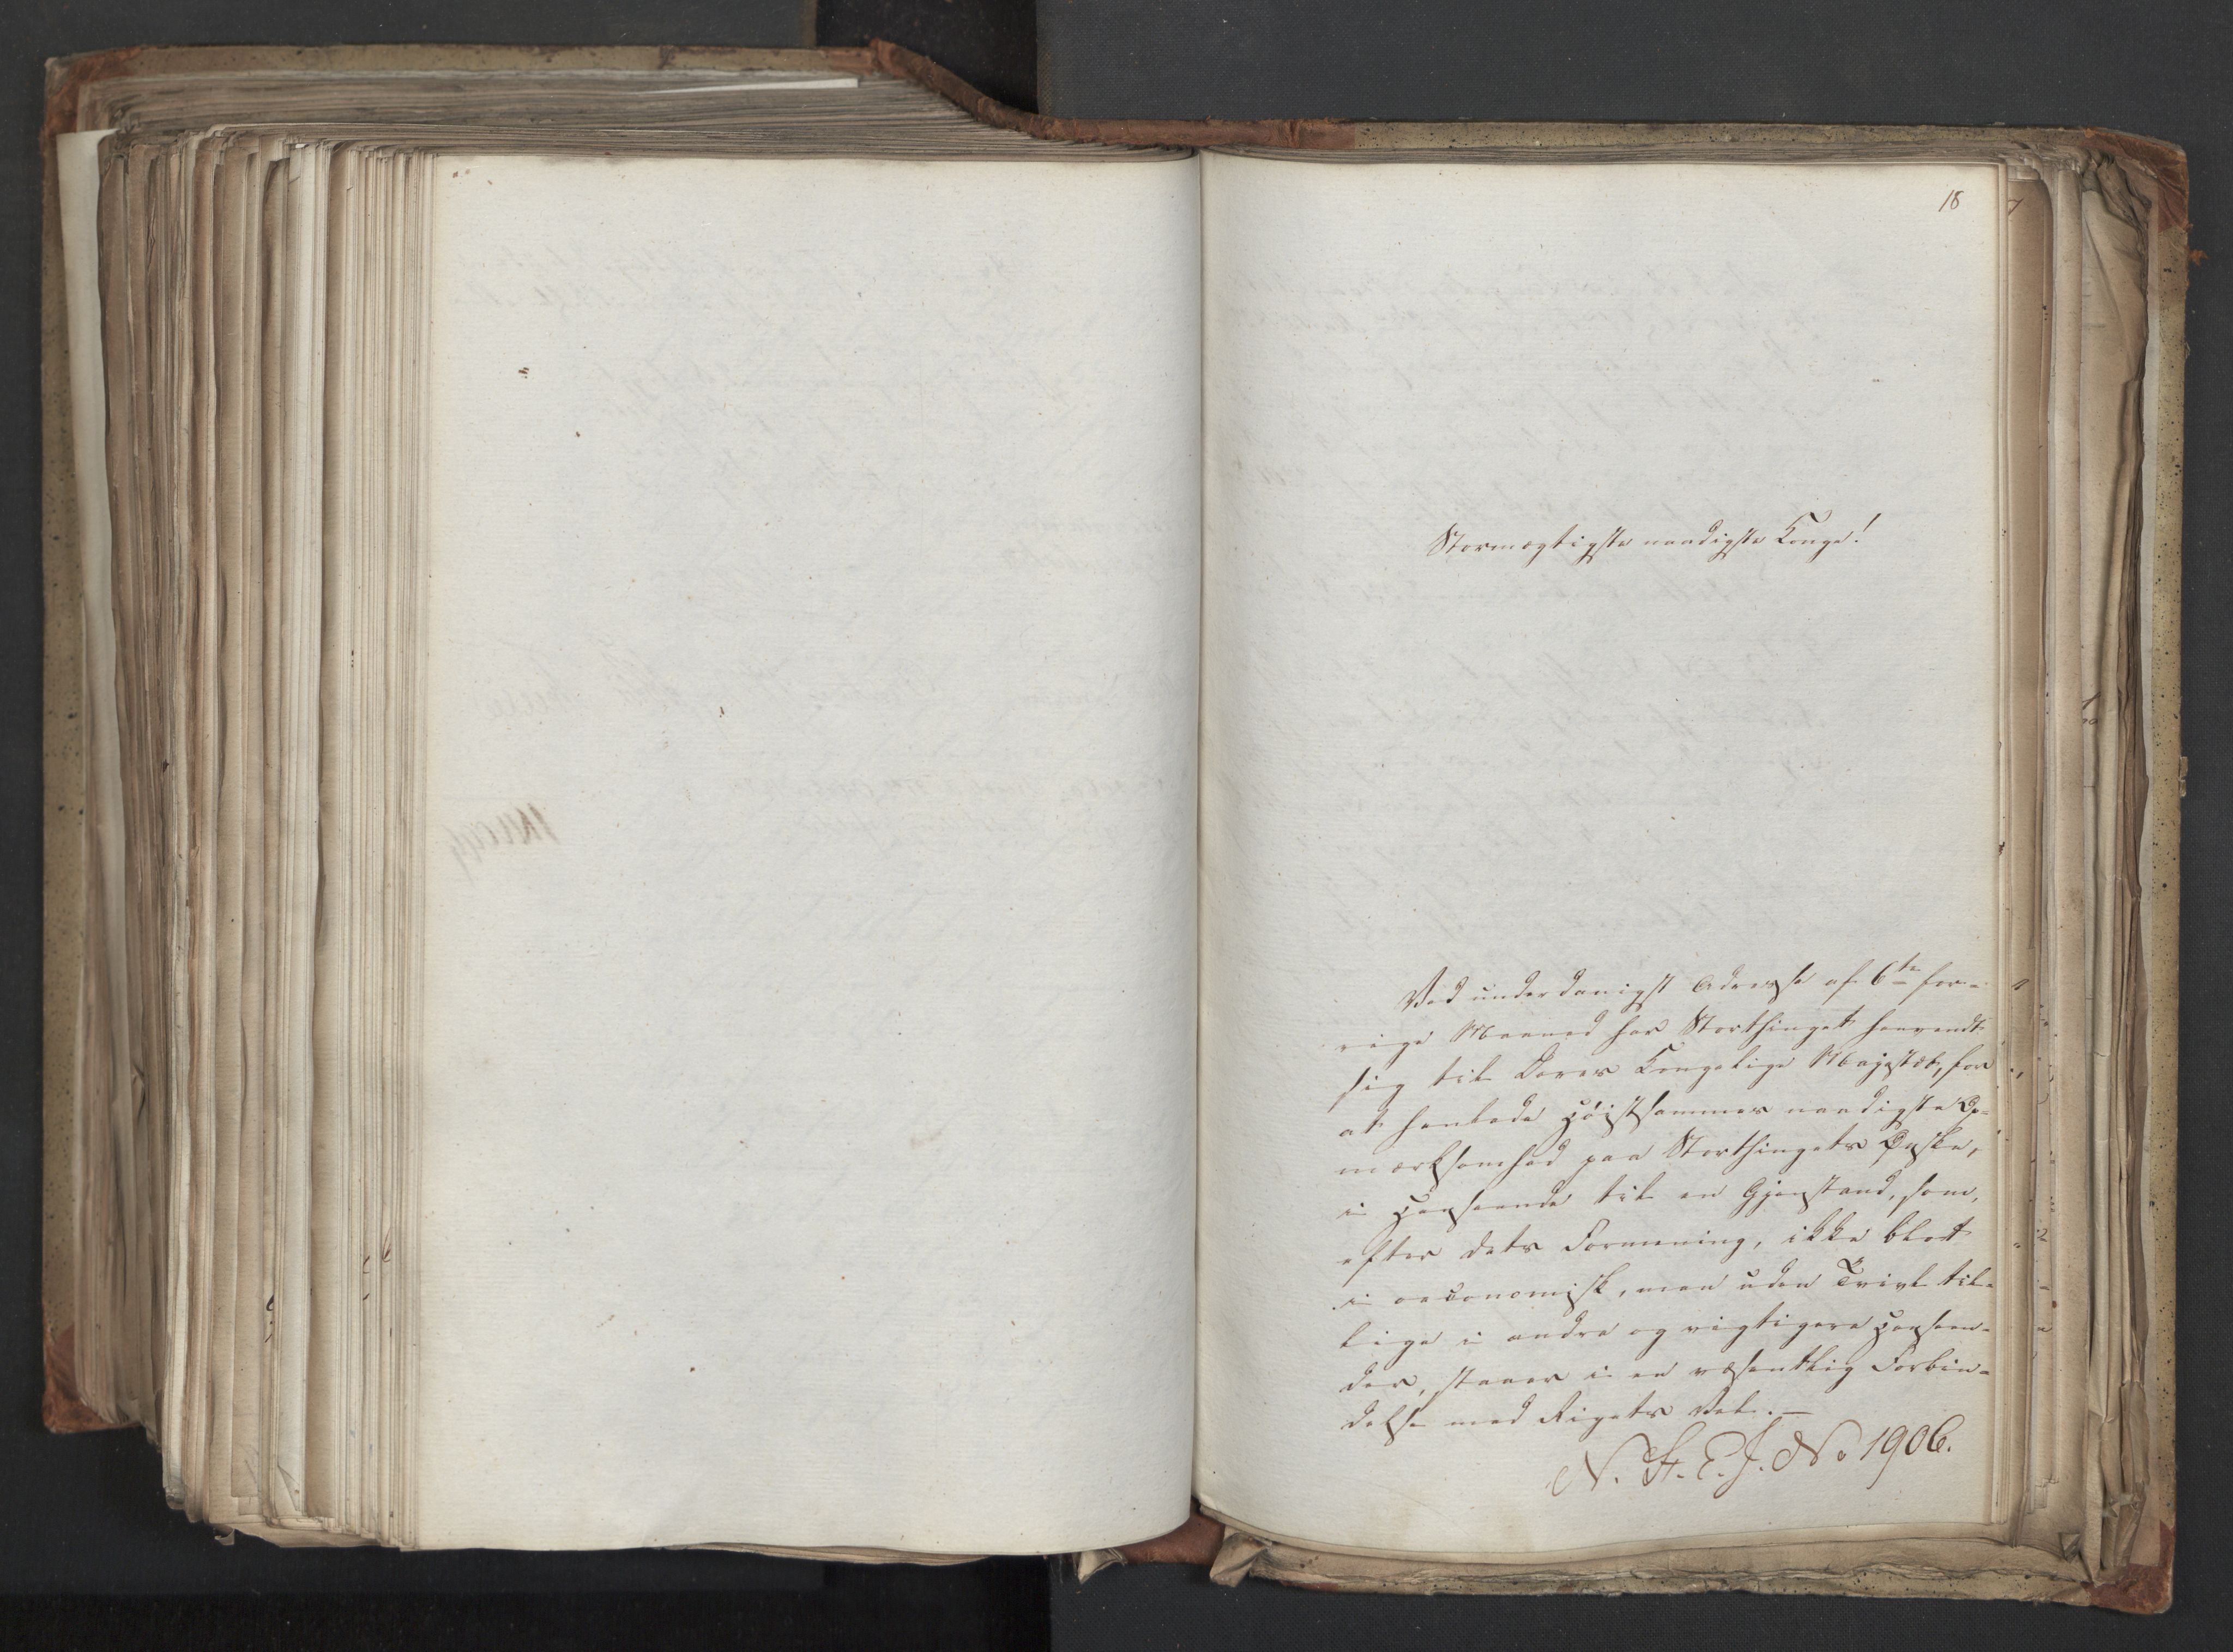 18
Stormægtigste naadigste Konge!
Ved underdanigst Adresse af 6te for-
rige Maaned har Storthinget henvendt
sig til Deres Kongelige Majestæt, for
at henlede Høistsammes naadigste Op-
mærksomhed paa Storthingets Ønske,
i Henseende til en Gjenstand, som,
efter dets Formening, ikke blot
i oeconomisk, men uden Tvivl til-
lige i andre og vigtigere Henseen-
der, staaer i en væsentlig Forbin-
delse med Rigets Vel. —
N. St. E. J. No 1906.